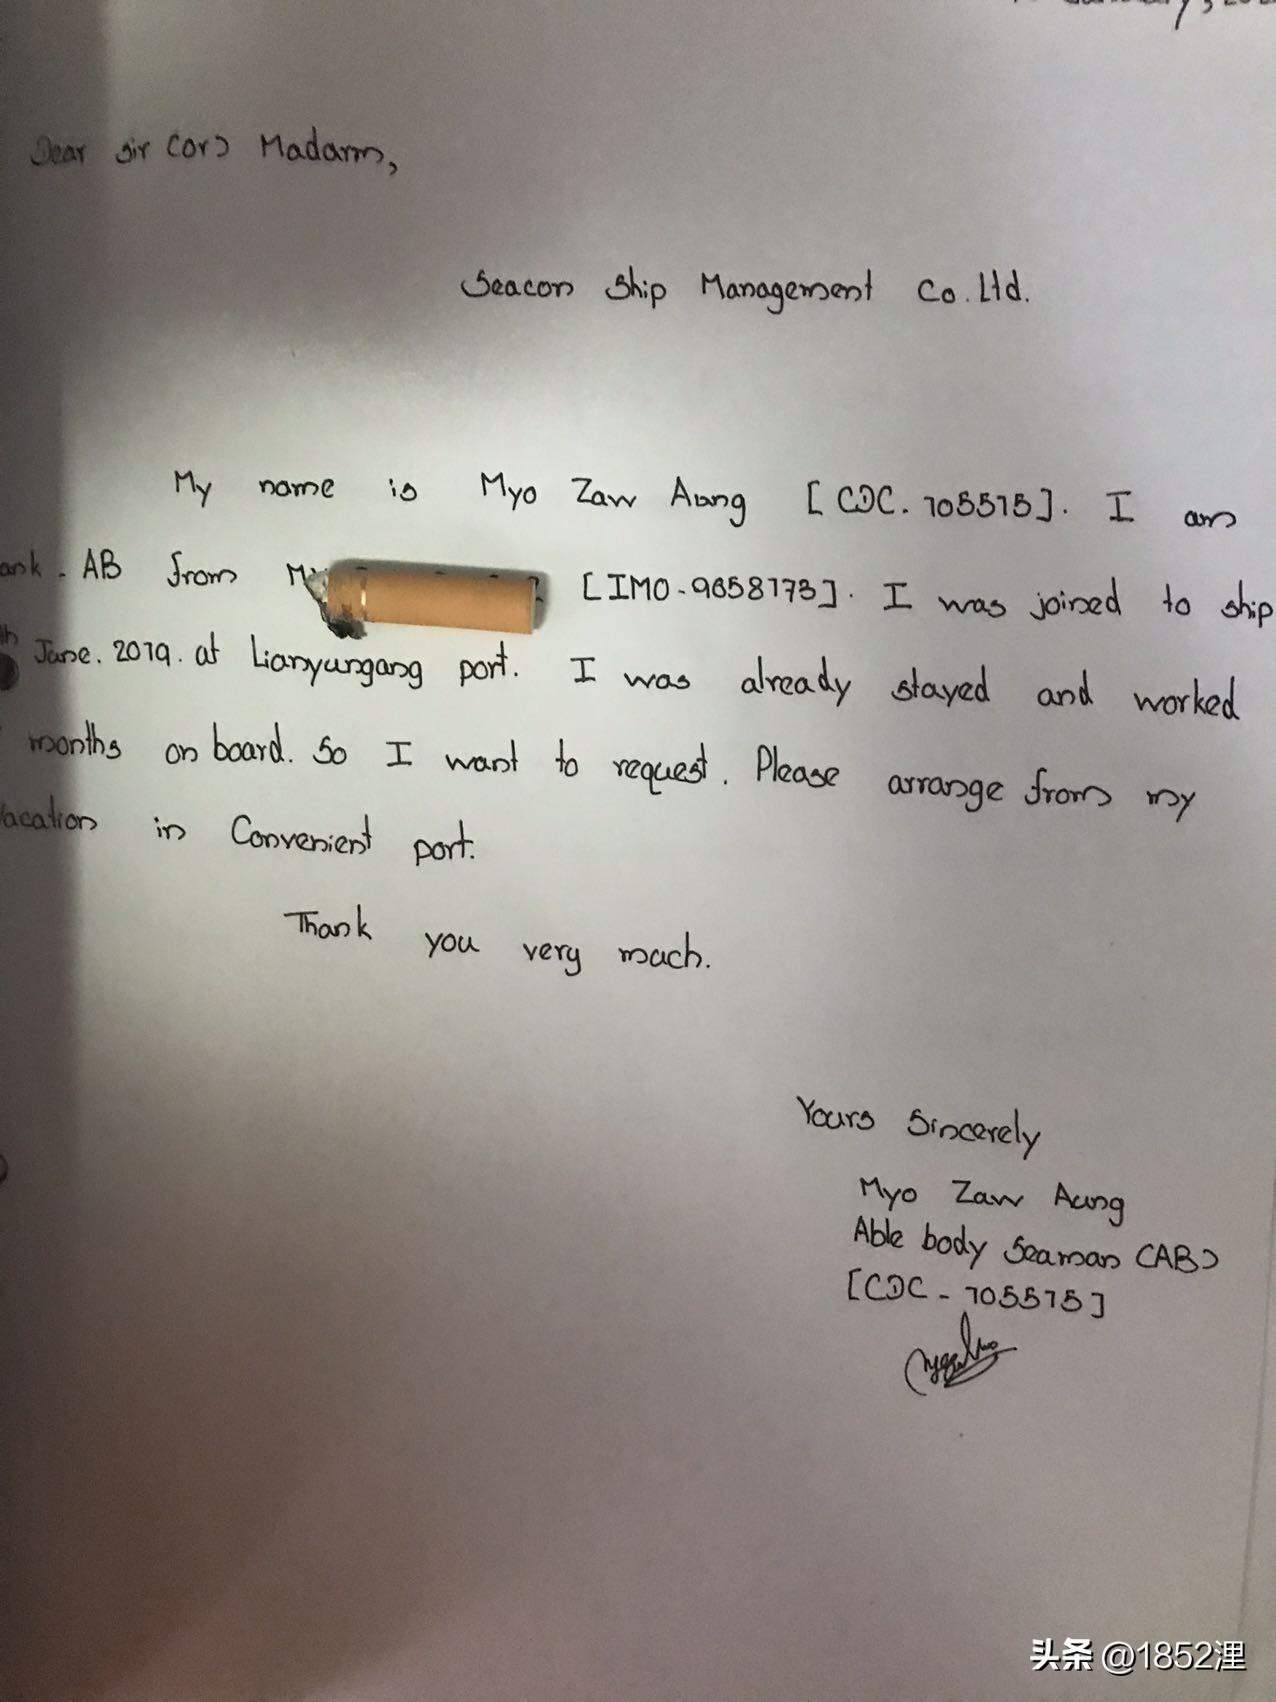 Dear Sir (or) Madam,
Seacon Ship Management Co.Ltd.
My name is Myo Zaw Aung [CDC. 105515]. I am
AB from [IMO-9658173]. I was joined to ship
June. 2019. at Lianyungang port. I was already stayed and worked
months on board. So I want to request. Please arrange from my
Vacation in Convenient port.
Thank you very mach.
Yours Sincerely
Myo Zaw Aung
Able body Seaman (AB)
[CDC - 105515]
头条 @1852浬